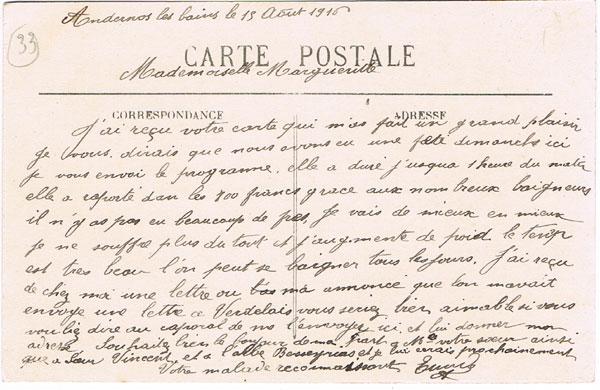 Andernos les bains le 15 Août 1916
33
CARTE POSTALE
Mademoiselle Marguerite
CORRESPONDANCE ADRESSE
J'ai reçu votre carte qui mas fait un grand plaisir
Je vous dirais que nous avons eu une fête dimanche ici
Je vous envoi le programme. elle a duré j'usqua 1 heure du matin
elle a raporté dan les 700 francs grace aux nombreux baigneurs
il n'y as pas eu beaucoup de Je vais de mieux en mieux
Je ne souffre plus du tout et j'augmente de poid le temp
est tres beau l'on peut se baigner tous les jours. J'ai reçu
de chez moi une lettre ou annonce que l'on mavait
envoye une lettre a Verdelais vous seriez bien aimable si vous
vouliez dire au caporal de me l'envoyer ici et lui donner mon
adresse Souhaite bien le bonjour de ma part a votre sœur ainsi
que a Sœur Vincent et a l'abbé Besseyrias et je lui ecrais prochainement
Votre malade reconnaissant